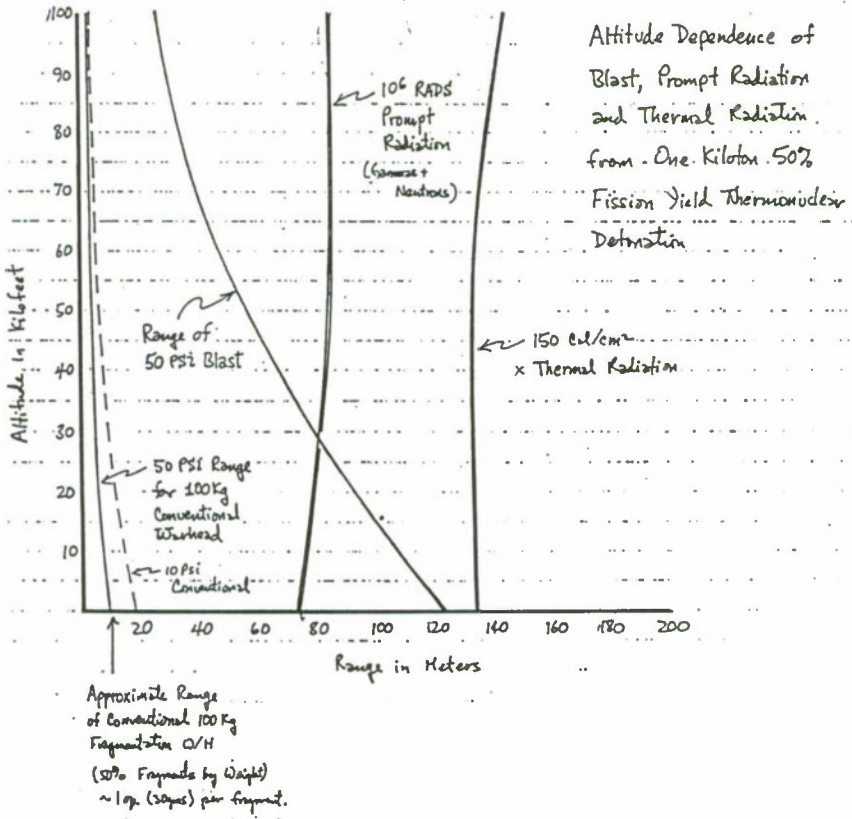 Altitude Dependence of
Blast, Prompt Radiation
and Thermal Radiation
from One Kiloton 50%
Fission Yield Thermonuclear
Detonation
100
90
80
70
60
50
40
30
20
10
Altitude in Kilofeet
10⁶ RADS
Prompt
Radiation
(Gammas +
Neutrons)
Range of
50 PSi Blast
150 Cal/cm²
x Thermal Radiation
50 PSI Range
for 100Kg
Conventional
Warhead
10 Psi
Conventional
20 40 60 80 100 120 140 160 180 200
Range in Meters
Approximate Range
of Conventional 100 Kg
Fragmentation
(50% Fragments by Weight)
~1 oz (30gms) per fragment.